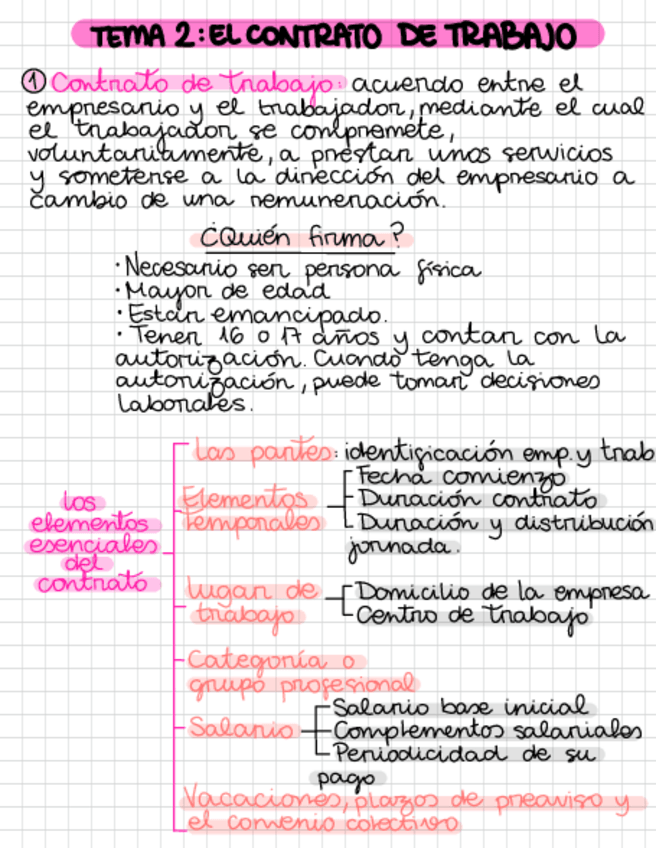 TEMA 2: EL CONTRATO DE TRABAJO
① Contrato de trabajo: acuerdo entre el
empresario y el trabajador, mediante el cual
el trabajador se compromete,
voluntariamente, a prestar unos servicios
y someterse a la dirección del empresario a
cambio de una remuneración.
¿Quién firma?
· Necesario ser persona física
· Mayor de edad
· Estar emancipado.
· Tener 16 o 17 años y contar con la
autorización. Cuando tenga la
autorización, puede tomar decisiones
laborales.
Los
elementos
esenciales
del
contrato
Las partes: identificación emp. y trab
Elementos
temporales
Fecha comienzo
Duración contrato
Duración y distribución
jornada.
Lugar de
trabajo
Domicilio de la empresa
Centro de trabajo
Categoría o
grupo profesional
Salario
Salario base inicial
Complementos salariales
Periodicidad de su
pago
Vacaciones, plazos de preaviso y
el convenio colectivo